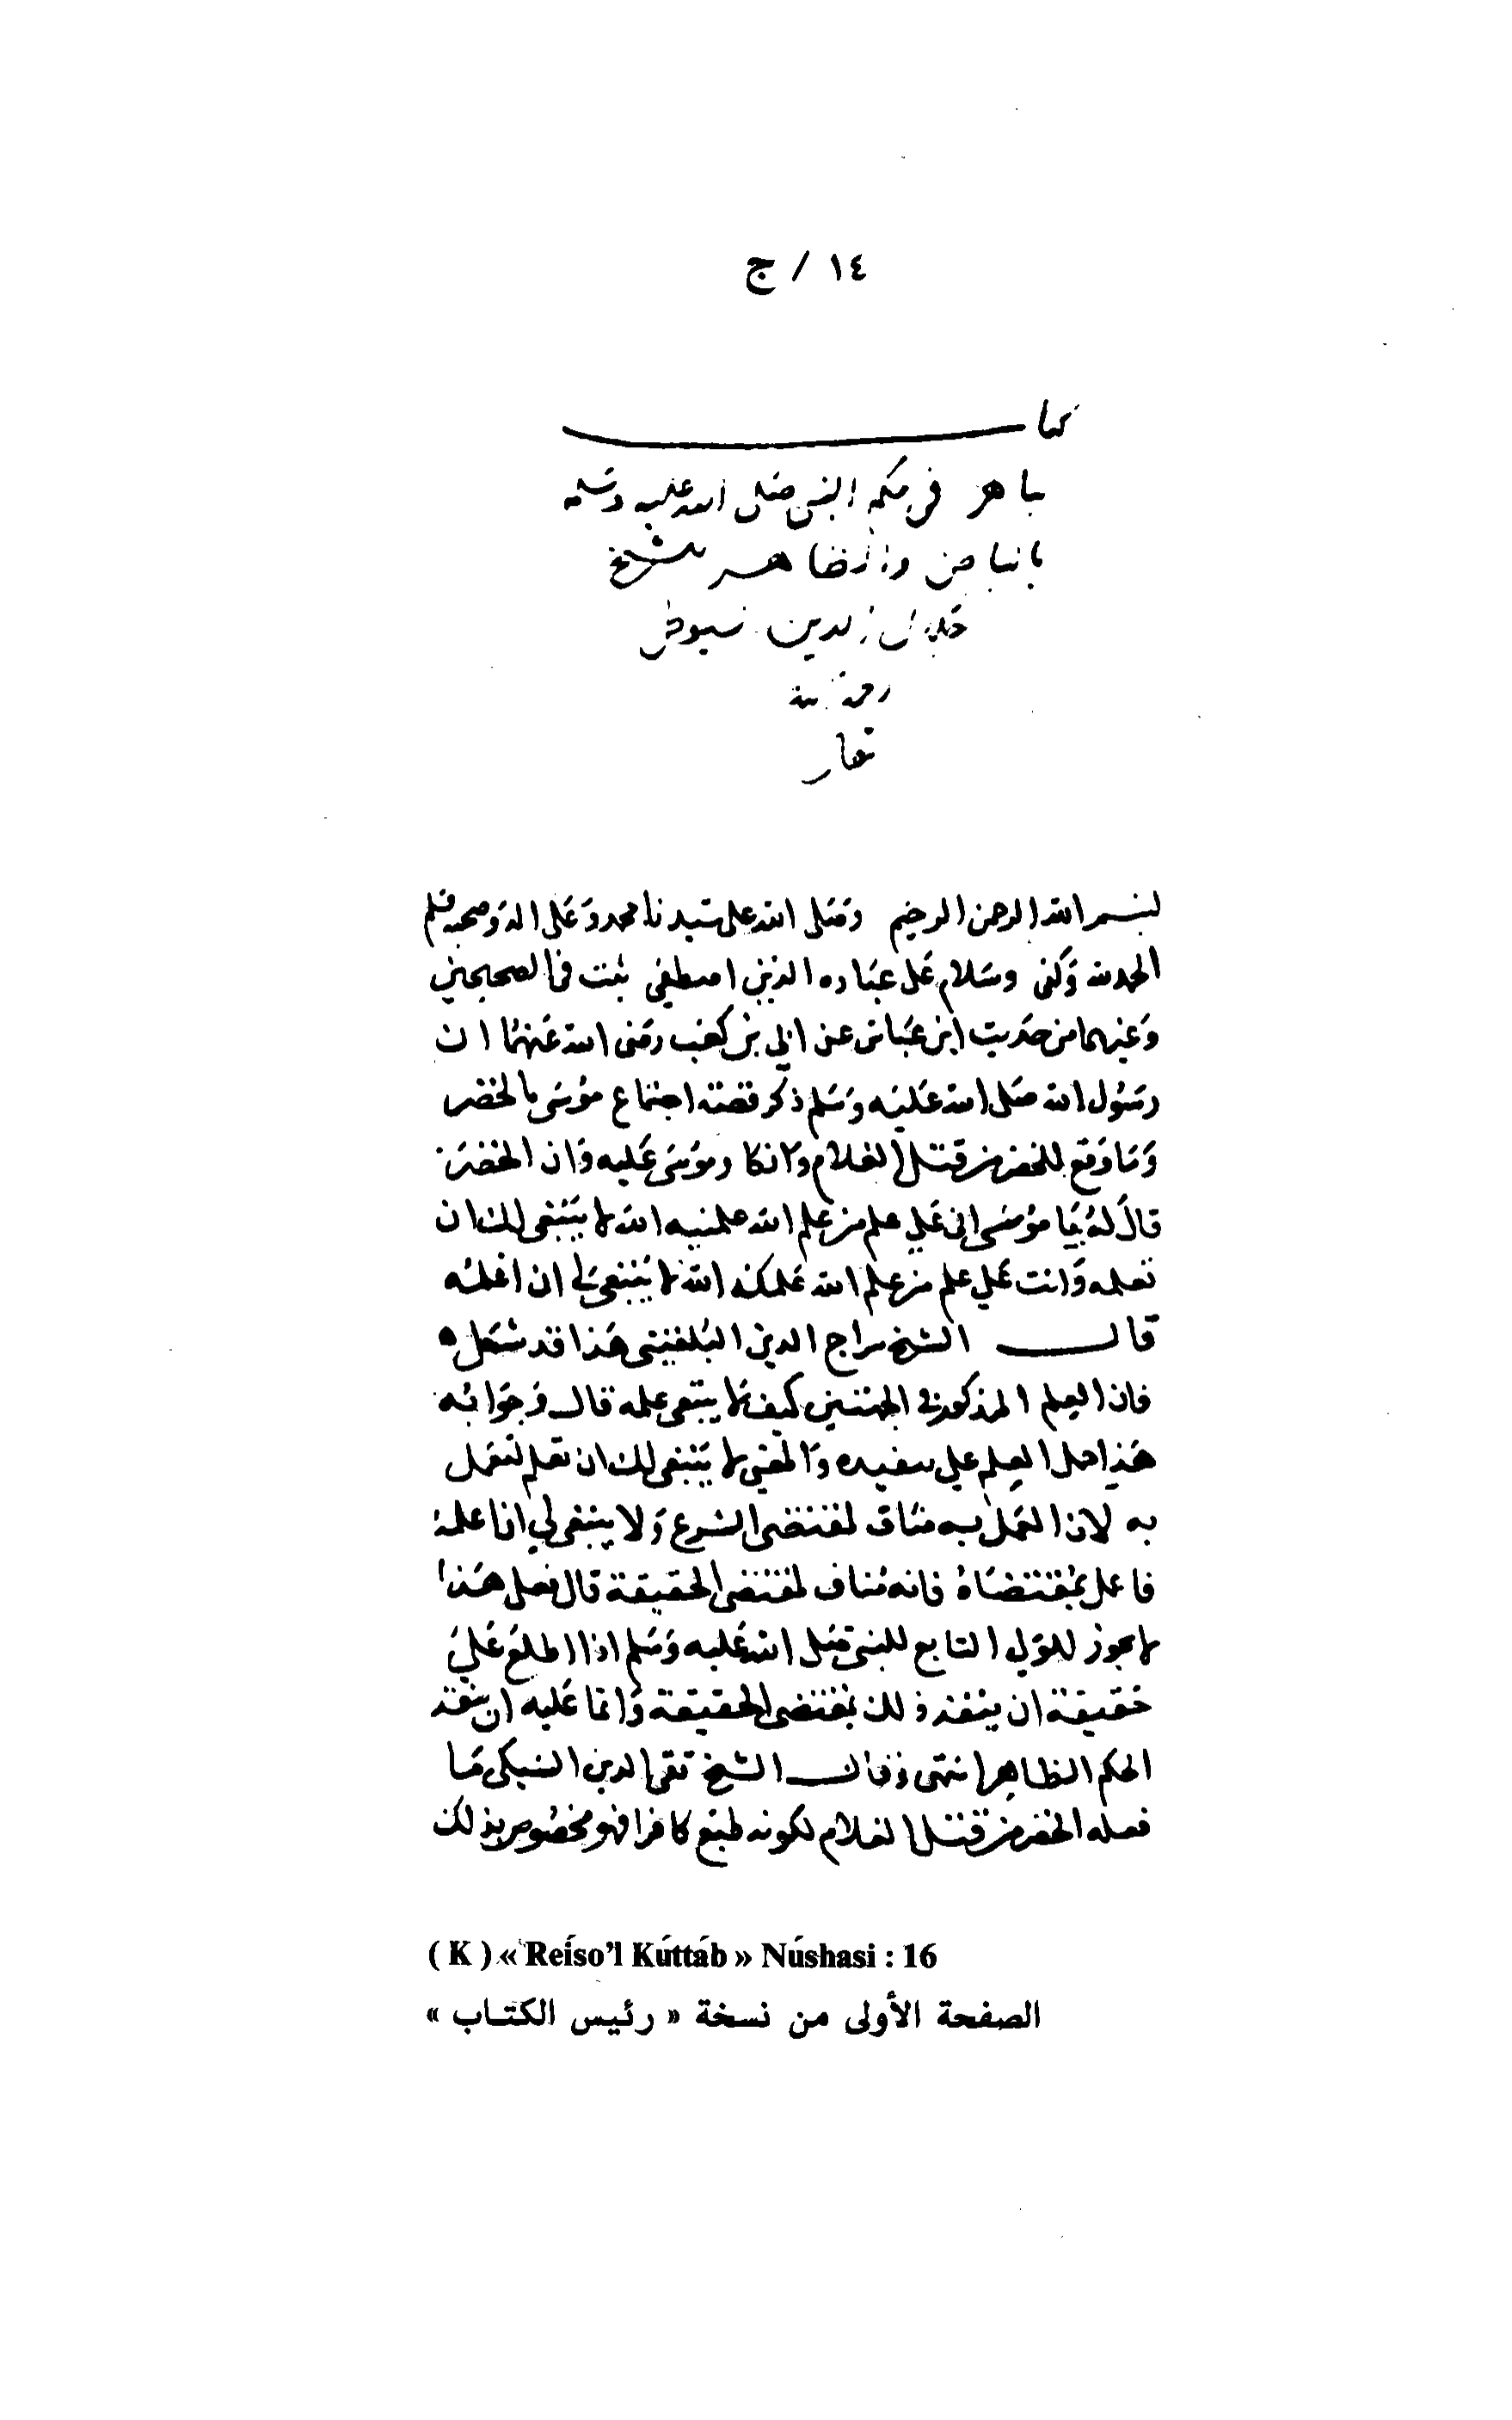 ١٤ / ج
كتاب
باهر في حكم النبي صلى الله عليه وسلم
بالباطن والظاهر للشيخ
جلال الدين سيوطي
رحمة الله
تعالى
بسم الله الرحمن الرحيم وصلى الله على سيدنا محمد وعلى اله وصحبه وسلم
الحمد لله وكفى وسلام على عباده الذين اصطفى ثبت في الصحيحين
وغيرهما من حديث ابن عباس عن ابي بن كعب رضى الله عنهما ان
رسول الله صلى الله عليه وسلم ذكر قصة اجتماع موسى بالخضر
وما وقع للخضر من قتل الغلام وانكار موسى عليه وان الخضر
قال له يا موسى اني على علم من علم الله علمنيه الله لا ينبغى لك ان
تعلمه وانت على علم من علم الله علمكه الله لا ينبغى لي ان اعلمه
قال الشيخ سراج الدين البلقيني هذا قد شكل
فان العلم المذكور في الجهتين كيف لا ينبغى علمه قال وجوابه
هذا حمل العلم على تنفيده والمعنى لا ينبغى لك ان تعلم لتعمل
به لان العمل به مناف لمقتضى الشرع ولا ينبغى لي ان اعلمه
فاعمل بمقتضاه فانه مناف لمقتضى الحقيقة قال فعلى هذا
لا يجوز للولي التابع للنبي صلى الله عليه وسلم اذا اطلع على
حقيقة ان ينفذ ذلك بمقتضى الحقيقة وانما عليه ان ينفذ
الحكم الظاهر انتهى وقال الشيخ تقى الدين السبكى ما
فعله الخضر من قتل الغلام لكونه طبع كافرا فهو مخصوص بذلك
( K ) « Reíso'l Kúttáb » Núshasi : 16
الصفحة الأولى من نسخة « رئيس الكتاب »